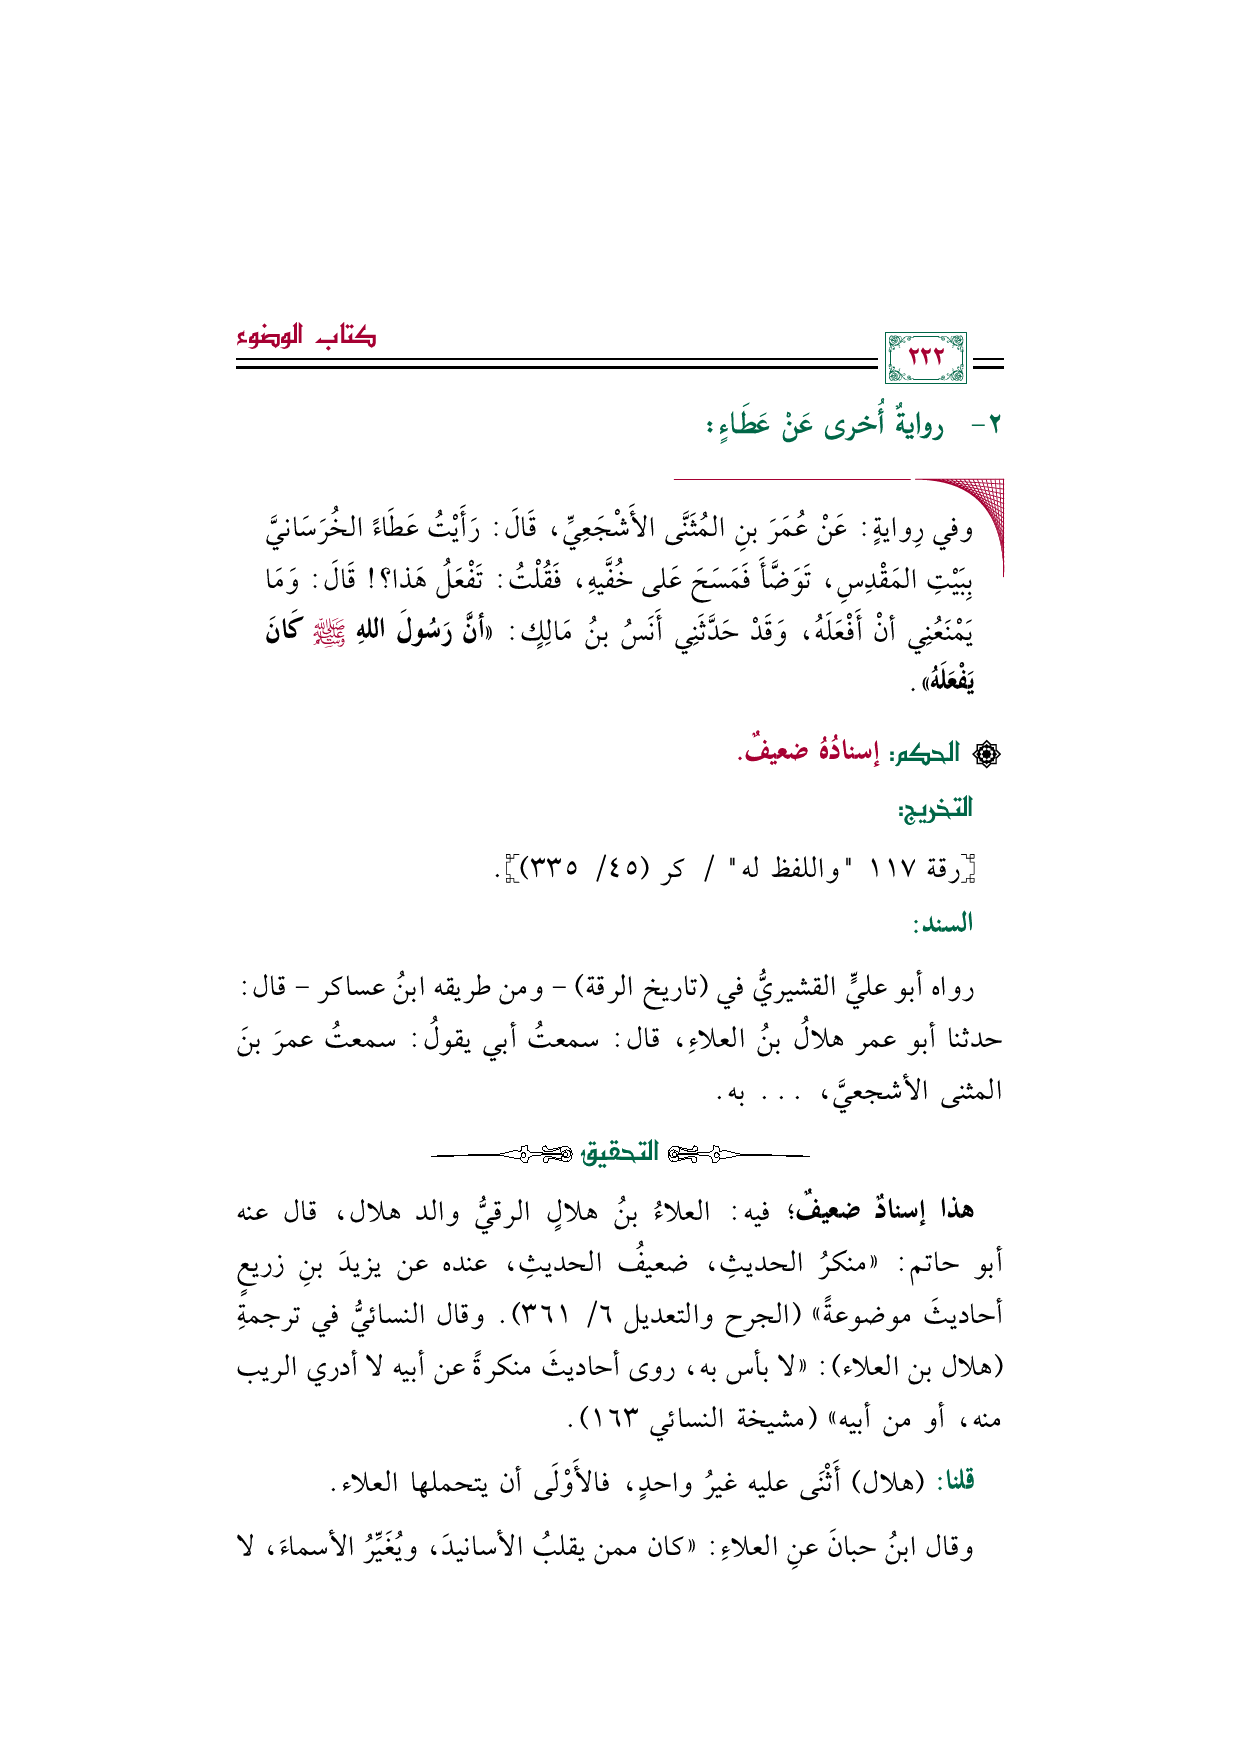 كتاب الوضوء
٢٢٢
٢- روايةٌ أُخرى عَنْ عَطَاءٍ:
وفي رِوايةٍ: عَنْ عُمَرَ بنِ المُثَنَّى الأَشْجَعِيِّ، قَالَ: رَأَيْتُ عَطَاءً الخُرَسَانيَّ
بِبَيْتِ المَقْدِسِ، تَوَضَّأَ فَمَسَحَ عَلى خُفَّيهِ، فَقُلْتُ: تَفْعَلُ هَذا؟! قَالَ: وَمَا
يَمْنَعُنِي أنْ أَفْعَلَهُ، وَقَدْ حَدَّثَنِي أَنَسُ بنُ مَالِكٍ: «أنَّ رَسُولَ اللهِ ﷺ كَانَ
يَفْعَلَهُ».
الحكم: إسنادُهُ ضعيفٌ.
التخريج:
[رقة ١١٧ "واللفظ له" / كر (٤٥/ ٣٣٥)].
السند:
رواه أبو عليٍّ القشيريُّ في (تاريخ الرقة) – ومن طريقه ابنُ عساكر – قال:
حدثنا أبو عمر هلالُ بنُ العلاءِ، قال: سمعتُ أبي يقولُ: سمعتُ عمرَ بنَ
المثنى الأشجعيَّ، ... به.
التحقيق
هذا إسنادٌ ضعيفٌ؛ فيه: العلاءُ بنُ هلالٍ الرقيُّ والد هلال، قال عنه
أبو حاتم: «منكرُ الحديثِ، ضعيفُ الحديثِ، عنده عن يزيدَ بنِ زريعٍ
أحاديثَ موضوعةً» (الجرح والتعديل ٦/ ٣٦١). وقال النسائيُّ في ترجمةِ
(هلال بن العلاء): «لا بأس به، روى أحاديثَ منكرةً عن أبيه لا أدري الريب
منه، أو من أبيه» (مشيخة النسائي ١٦٣).
قلنا: (هلال) أَثْنَى عليه غيرُ واحدٍ، فالأَوْلَى أن يتحملها العلاء.
وقال ابنُ حبانَ عنِ العلاءِ: «كان ممن يقلبُ الأسانيدَ، ويُغَيِّرُ الأسماءَ، لا